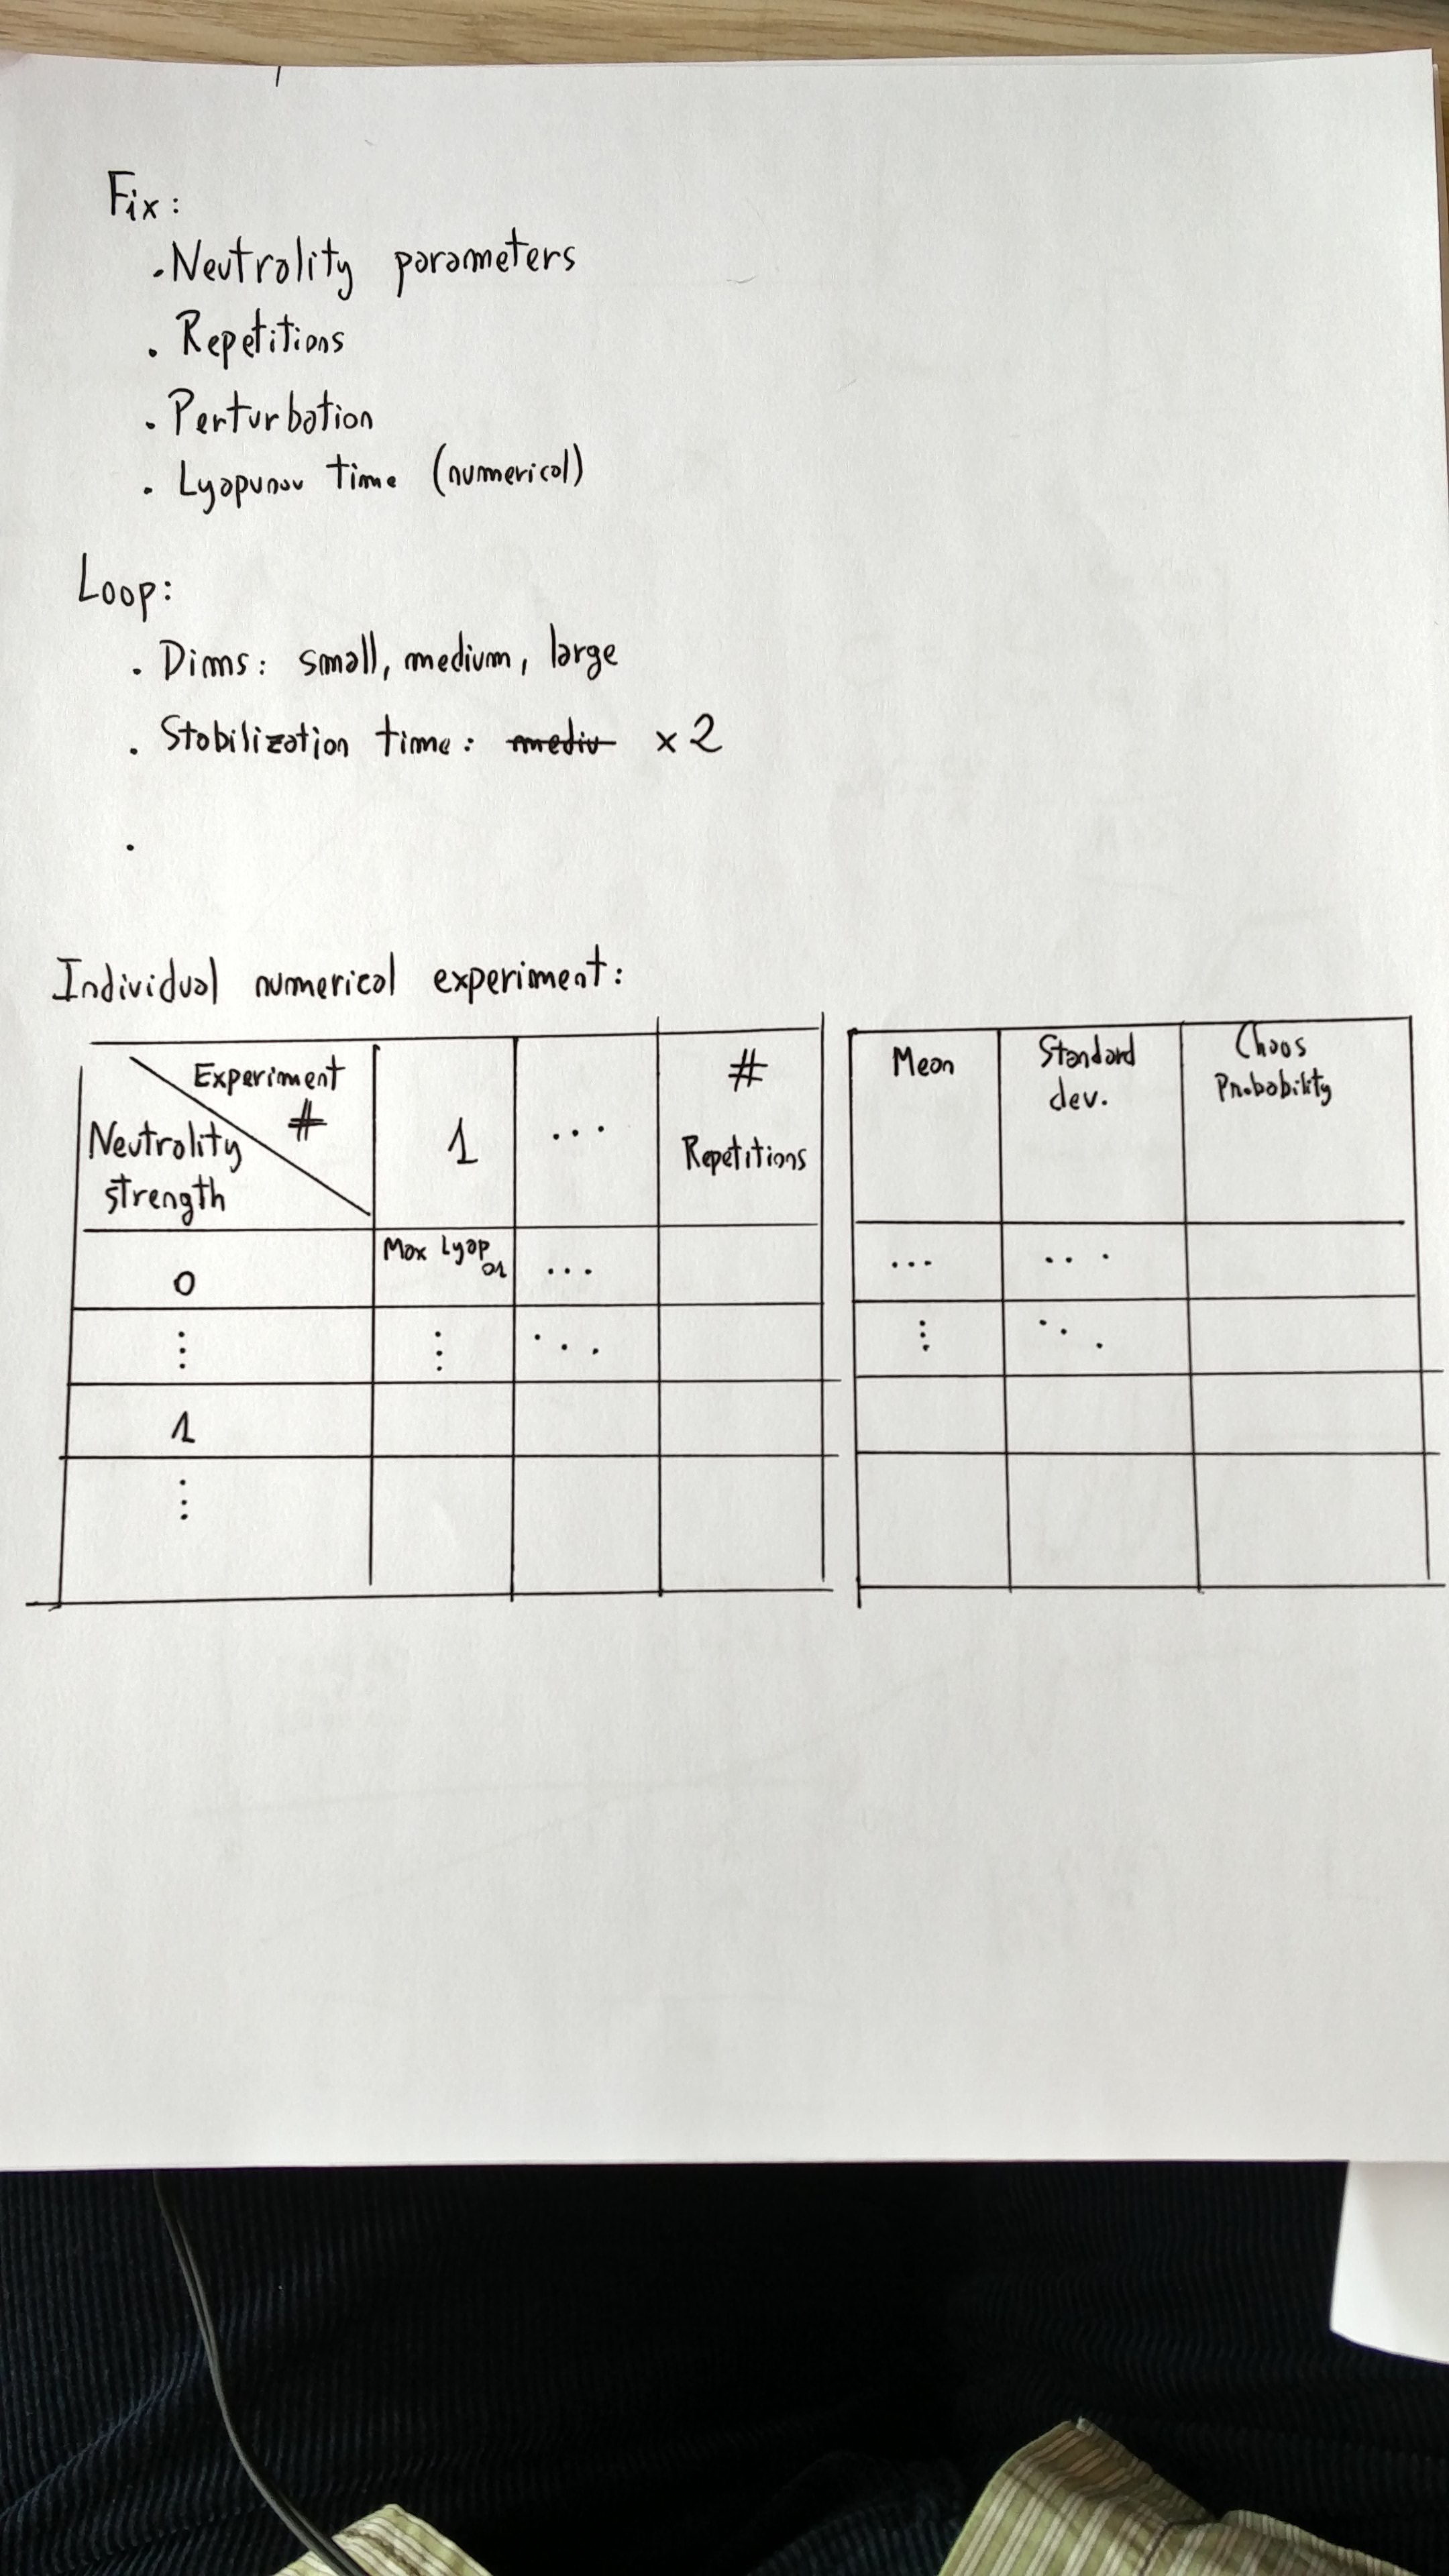 Fix:
. Neutrality parameters
. Repetitions
. Perturbation
. Lyapunov time (numerical)
Loop:
. Dims: small, medium, large
. Stabilization time: mediu x 2
.
Individual numerical experiment:
Experiment #
Neutrality strength
1
...
# Repetitions
Mean
Standard dev.
Chaos Probability
0
Max Lyap 01
...
...
...
⋮
⋮
⋱
⋮
⋱
1
⋮